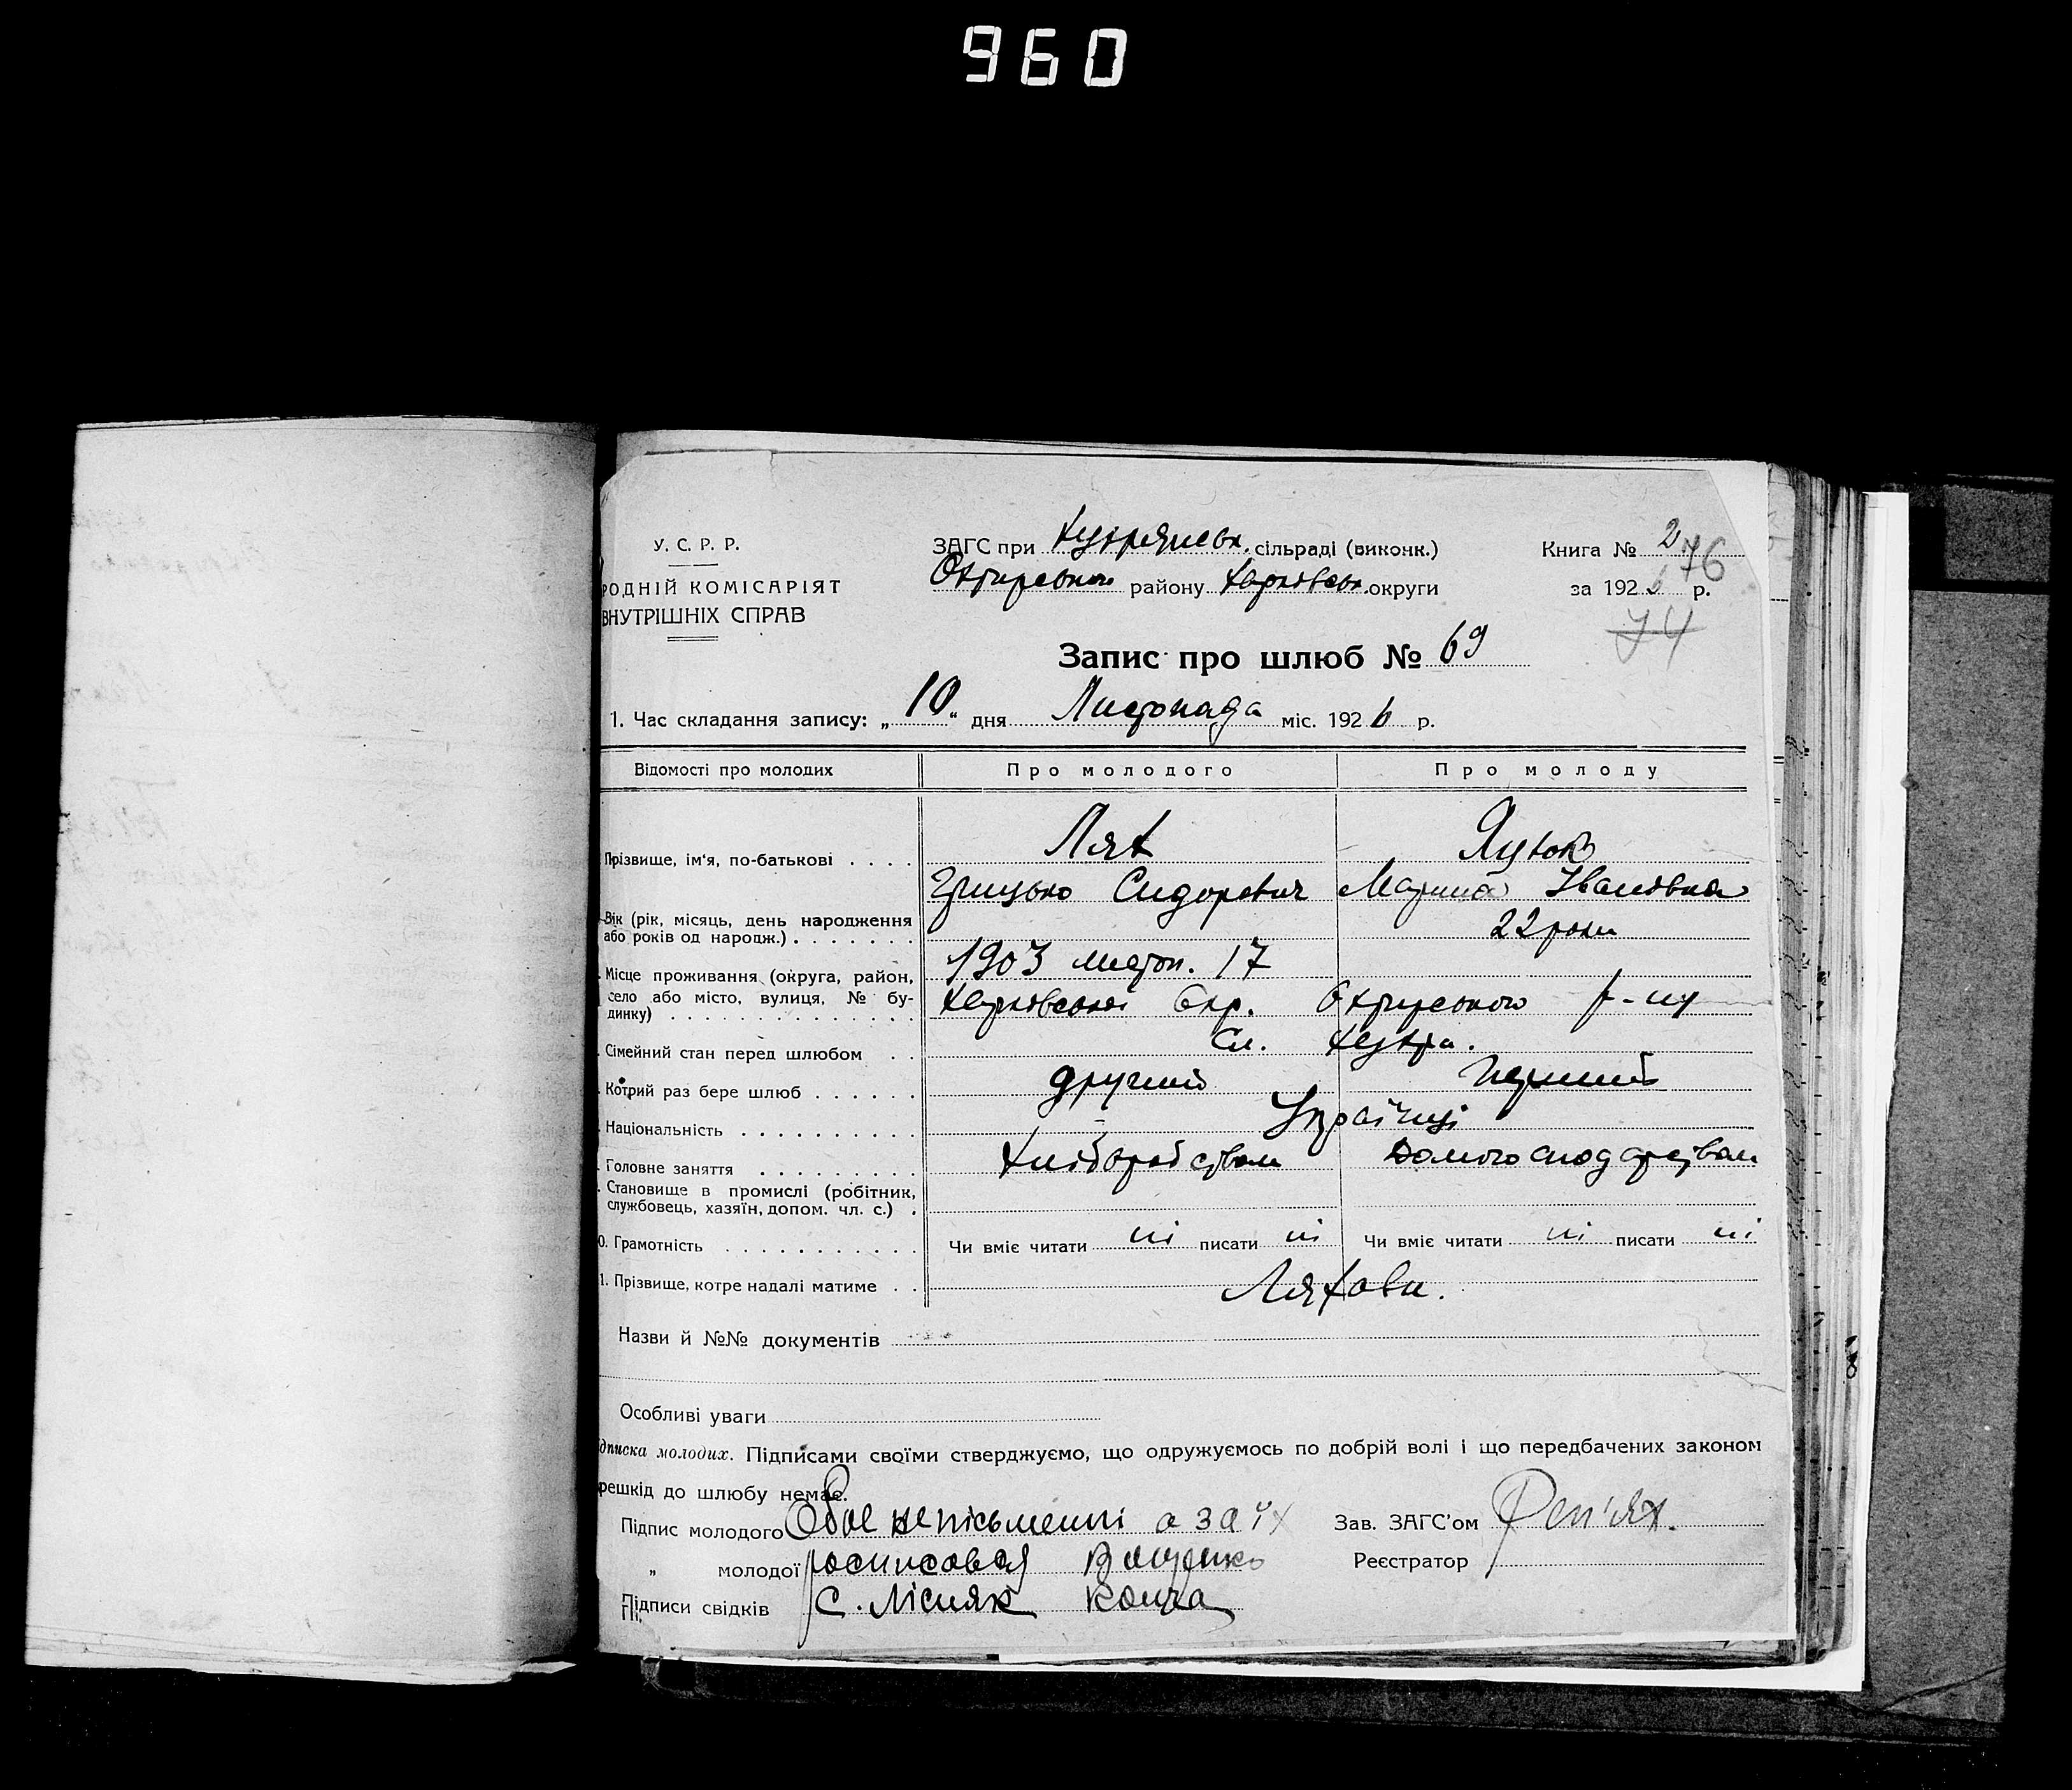 960
У. С. Р. Р.
РОДНІЙ КОМІСАРІЯТ
ВНУТРІШНІХ СПРАВ
ЗАГС при Хухрянськ. сільраді (виконк.)
Охтирського району Харківськ. округи
Книга № 2
76
за 1926 р.
74
Запис про шлюб № 69
1. Час складання запису: „10“ дня Листопада міс. 1926 р.
Відомості про молодих Про молодого Про молоду
Прізвище, ім'я, по-батькові . . . . Лях Яцюк
Грицько Сидорович Марина Івановна
Вік (рік, місяць, день народження
або років од народж.) . . . . . . . 22 роки
1903 листоп. 17
Місце проживання (округа, район,
село або місто, вулиця, № бу-
динку) . . . . . . . . . . . . . . Харковської Окр. Охтирського р-ну
Сл. Хухра.
Сімейний стан перед шлюбом . .
Котрий раз бере шлюб . . . . . . другий перший
Національність . . . . . . . . . . Українці
Головне заняття . . . . . . . . . Хліборобством Домогосподарством
Становище в промислі (робітник,
службовець, хазяїн, допом. чл. с.) .
0. Грамотність . . . . . . . . . . . Чи вміє читати ні писати ні Чи вміє читати ні писати ні
1. Прізвище, котре надалі матиме . . Ляхови.
Назви й №№ документів
Особливі уваги
дписка молодих. Підписами своїми стверджуємо, що одружуємось по добрій волі і що передбачених законом
решкід до шлюбу немає.
Підпис молодого Обоє непісьменні а за їх Зав. ЗАГС'ом Реп'ях.
„ молодої росписовся Реєстратор
Підписи свідків С. Лісняк